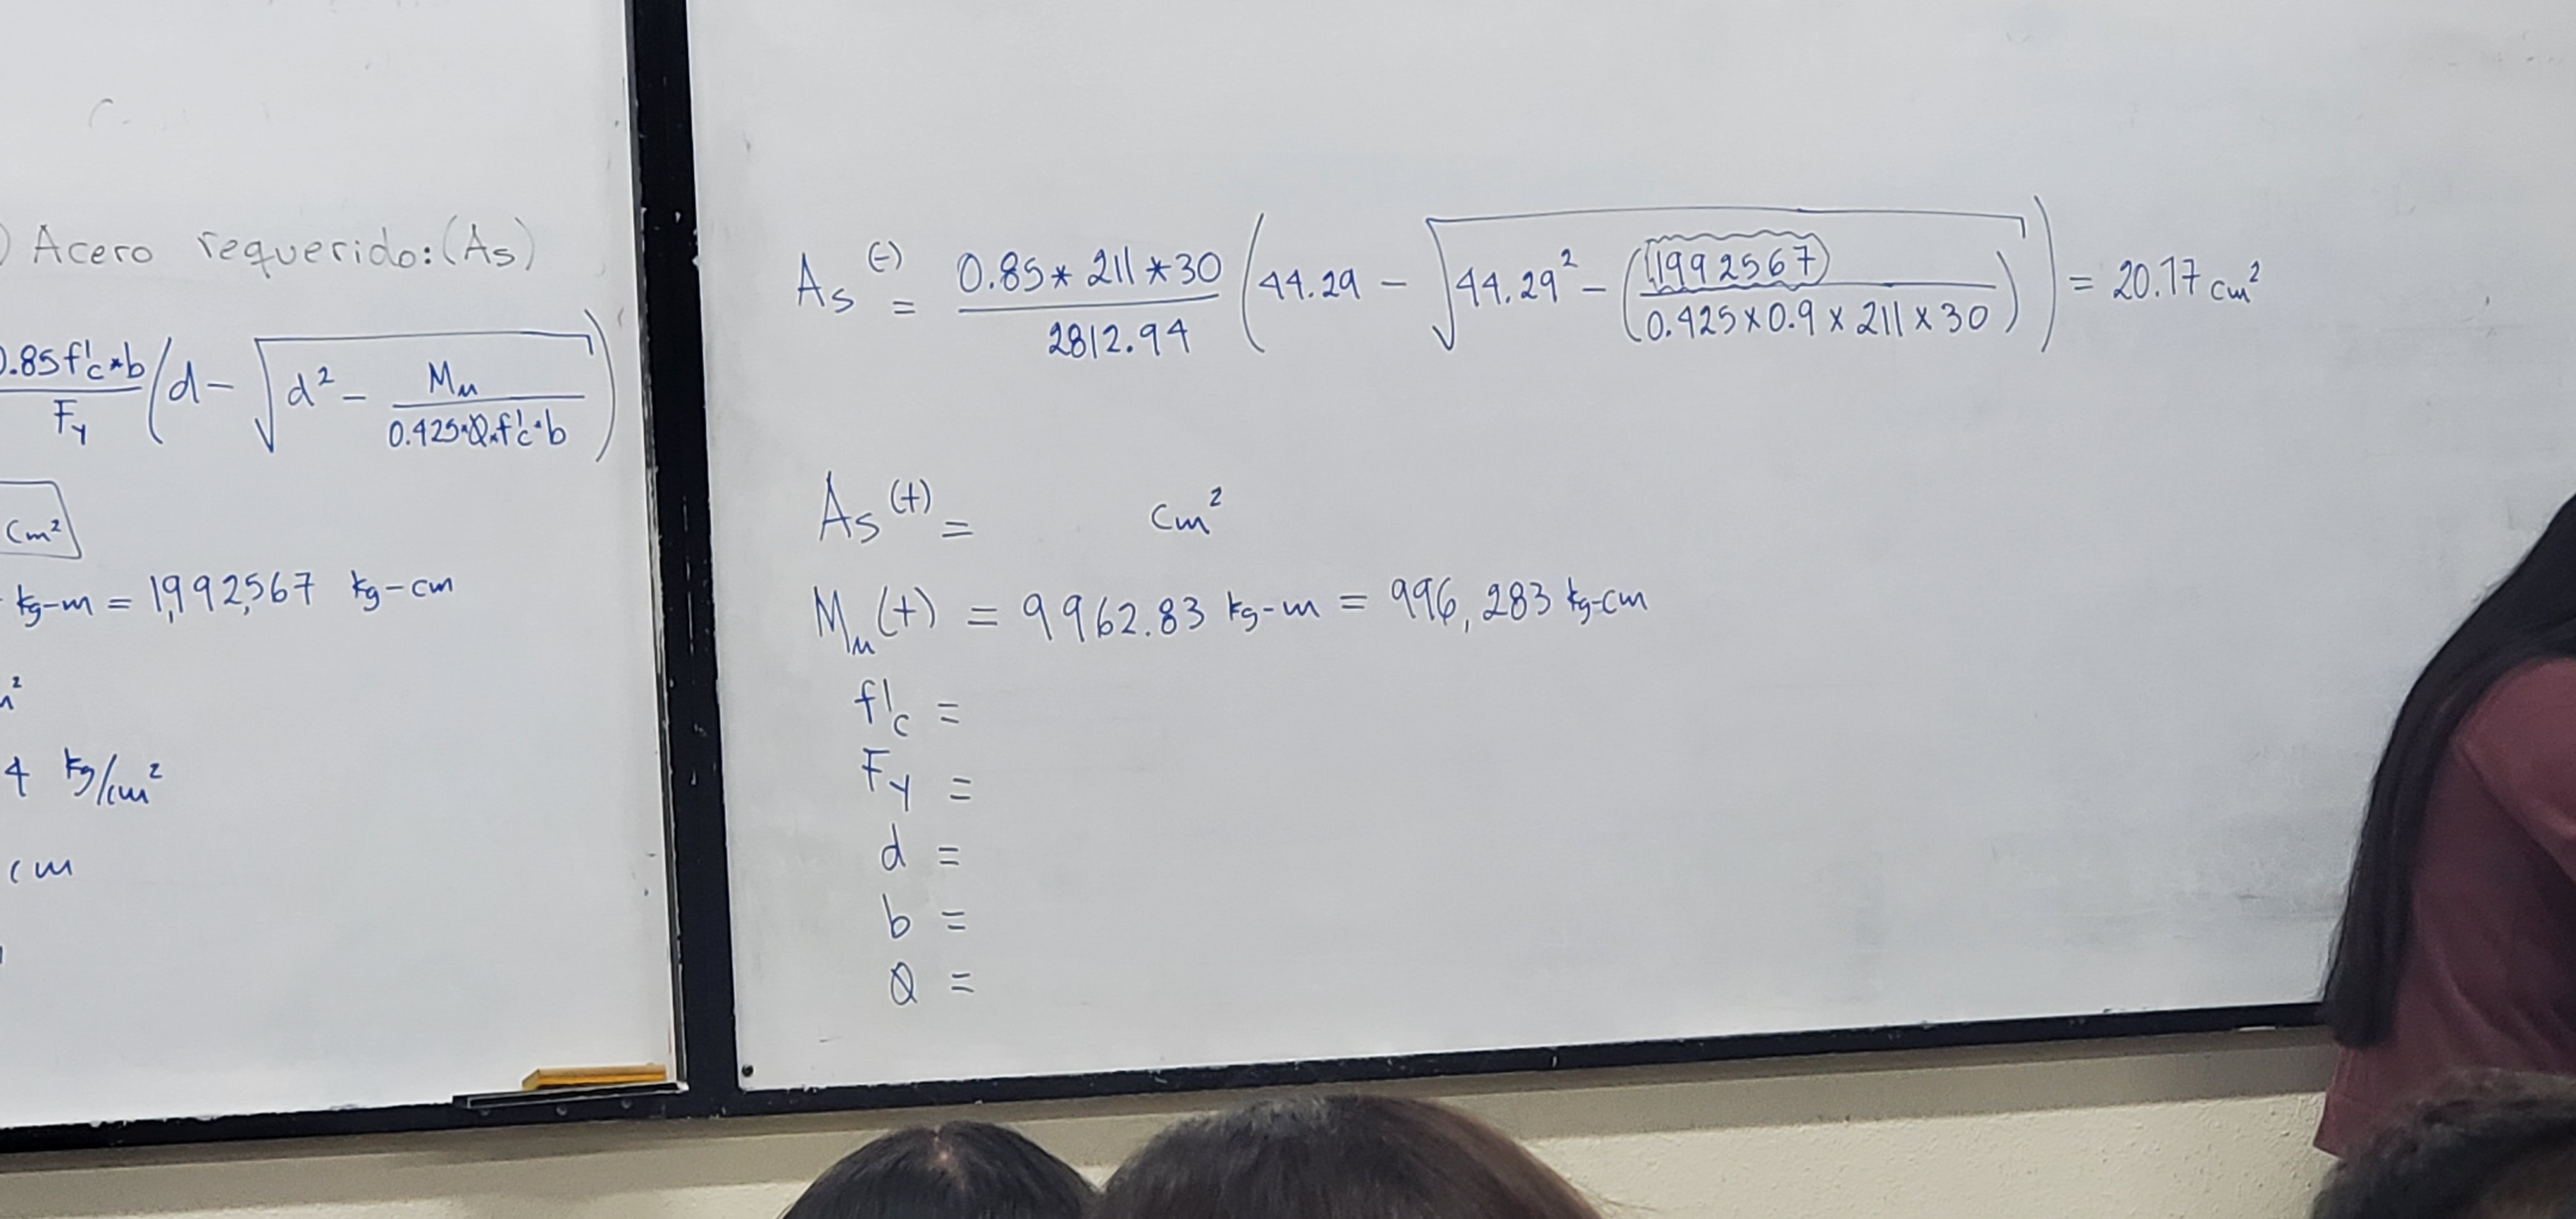 ) Acero requerido: (As)
0.85 f'c * b / Fy (d - √(d² - Mu / 0.425*Ø*f'c*b))
cm²
kg-m = 1,992,567 kg-cm
m²
4 kg/cm²
cm
As (-) = 0.85 * 211 * 30 / 2812.94 (44.29 - √(44.29² - ((1992567) / 0.425 x 0.9 x 211 x 30))) = 20.17 cm²
As (+) = cm²
Mu (+) = 9962.83 kg-m = 996,283 kg-cm
f'c =
Fy =
d =
b =
Ø =